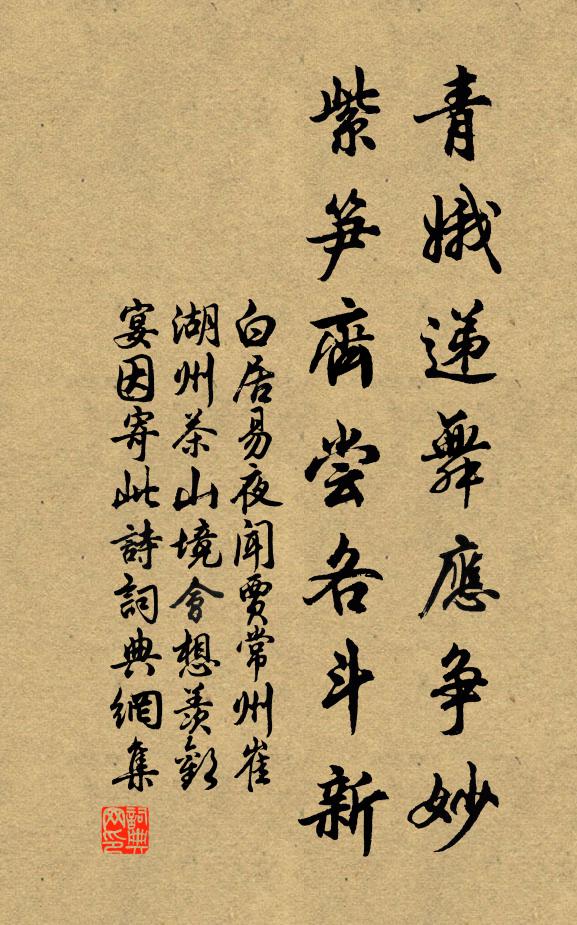 青娥递舞應争妙
紫笋齊尝各斗新
白居易夜闻贾常州崔
湖州茶山境會想羡歡
宴因寄此詩詞典網集
詞典网印